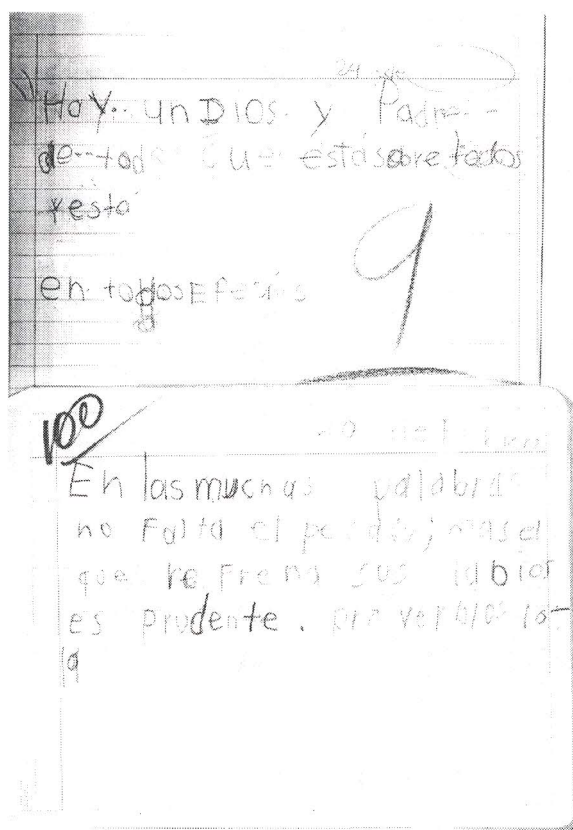 Hay un Dios y Padre
de todo que está sobre todos
y está
9
en todos Efesios
100
En las muchas palabras
no Falta el pecado; mas el
que reFrena sus labios
es prudente. proverbios 10-
19